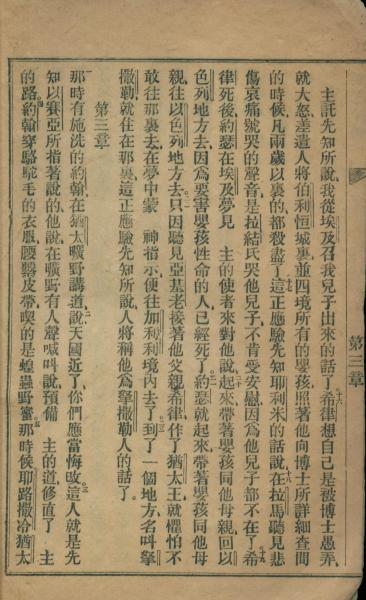 主託先知所說、我從埃及召我兒子出來的話了。十六希律想自己是被博士愚弄、
就大怒、差遣人將伯利恒城裏、並四境所有的嬰孩、照著他向博士所詳細查問
的時候、凡兩歲以裏的、都殺盡了。十七這正應驗先知耶利米的話說、十八在拉馬聽見悲
傷哀痛號哭的聲音、是拉結氏哭他兒子、不肯受安慰、因爲他兒子都不在了。十九希
律死後、約瑟在埃及夢見 主的使者來對他說、二十起來帶著嬰孩同他母親、回以
色列地方去、因爲要害嬰孩性命的人已經死了。二一約瑟就起來帶著嬰孩同他母
親、往以色列地方去。二二只因聽見亞基老接著他父親希律、作了猶太王、就懼怕不
敢往那裏去、在夢中蒙 神指示、便往加利利境內去了。二三到了一個地方、名叫拏
撒勒、就住在那裏、這正應驗先知所說、人將稱他爲拏撒勒人的話了。
第三章
那時有施洗的約翰、在猶太曠野講道、二說、天國近了、你們應當悔改。三這人就是先
知以賽亞所指著說的、他說、在曠野有人聲喊叫說、預備 主的道、修直了 主
的路。四約翰穿駱駝毛的衣服、腰繫皮帶、喫的是蝗蟲野蜜。五那時候、耶路撒冷、猶太
第三章